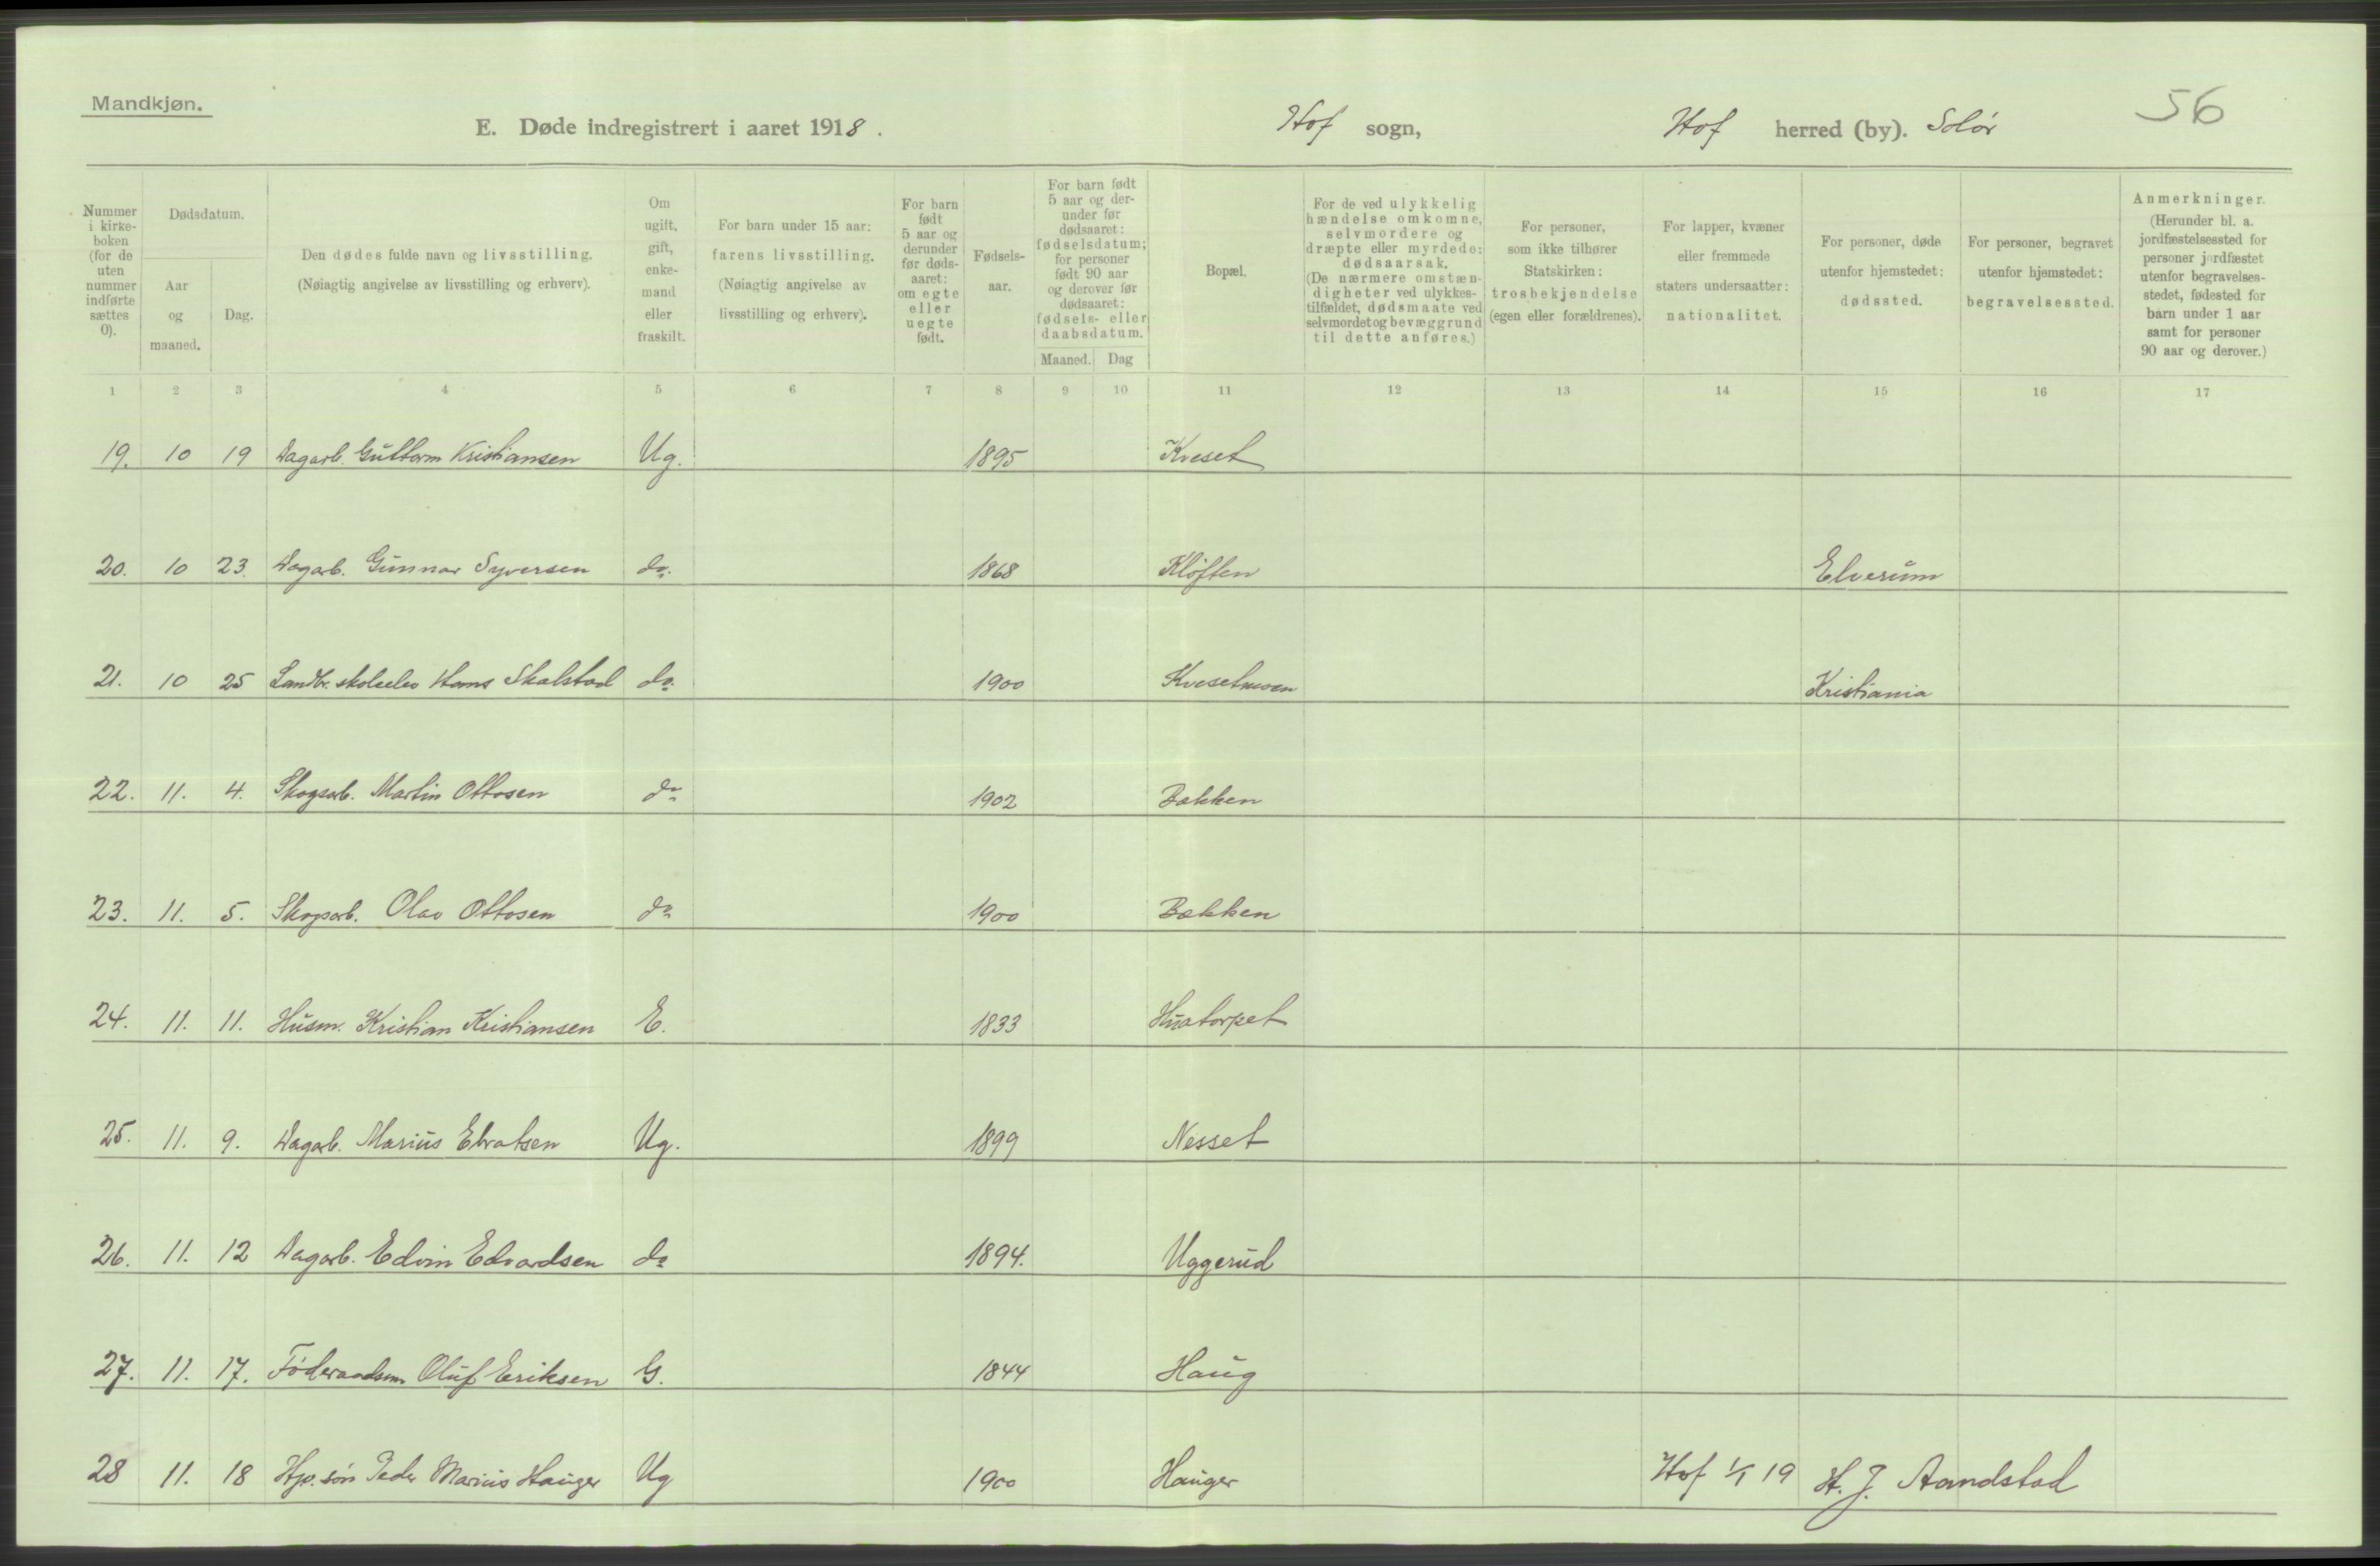 Mandkjøn.
56
E. Døde indregistrert i aaret 1918. Hof sogn, Hof herred (by). Solør
Nummer i kirkeboken (for de uten nummer indførte sættes 0).
Dødsdatum.
Aar og maaned.
Dag.
Den dødes fulde navn og livsstilling.
(Nøiagtig angivelse av livsstilling og erhverv).
Om ugift, gift, enkemand eller fraskilt.
For barn under 15 aar: farens livsstilling.
(Nøiagtig angivelse av livsstilling og erhverv).
For barn født 5 aar og derunder før dødsaaret: om egte eller uegte født.
Fødselsaar.
For barn født 5 aar og derunder før dødsaaret: fødselsdatum; for personer født 90 aar og derover før dødsaaret: fødsels- eller daabsdatum.
Maaned. Dag
Bopæl.
For de ved ulykkelig hændelse omkomne, selvmordere og dræpte eller myrdede: dødsaarsak.
(De nærmere omstændigheter ved ulykkestilfældet, dødsmaate ved selvmordet og bevæggrund til dette anføres.)
For personer, som ikke tilhører Statskirken: trosbekjendelse (egen eller forældrenes).
For lapper, kvæner eller fremmede staters undersaatter: nationalitet.
For personer, døde utenfor hjemstedet: dødssted.
For personer, begravet utenfor hjemstedet: begravelsessted.
Anmerkninger.
(Herunder bl. a. jordfæstelsessted for personer jordfæstet utenfor begravelsesstedet, fødested for barn under 1 aar samt for personer 90 aar og derover.)
1 2 3 4 5 6 7 8 9 10 11 12 13 14 15 16 17
19. 10 19 Dagarb. Guttorm Kristiansen Ug. 1895 Kveset
20. 10 23. Dagarb. Gunnar Syversen do. 1868 Kløften Elverum
21. 10 25 Landbr. skoleelev Hans Skalstad do. 1900 Kvesetmoen Kristiania
22. 11. 4. Skogsarb. Martin Ottosen do 1902 Bakken
23. 11. 5. Skogsarb. Olav Ottosen do 1900 Bakken
24. 11. 11. Husm. Kristian Kristiansen E. 1833 Huatorpet
25. 11. 9. Dagarb. Marius Ug. 1899 Nesset
26. 11. 12 Dagarb. Edvin Edvardsen do 1894. Uggerud
27. 11. 17. Føderaadsm. Oluf Eriksen G. 1844 Haug
28 11. 18 Peder Marius Hauger Ug 1900 Hauger Hof 1/1 19 H. J. Aandstad